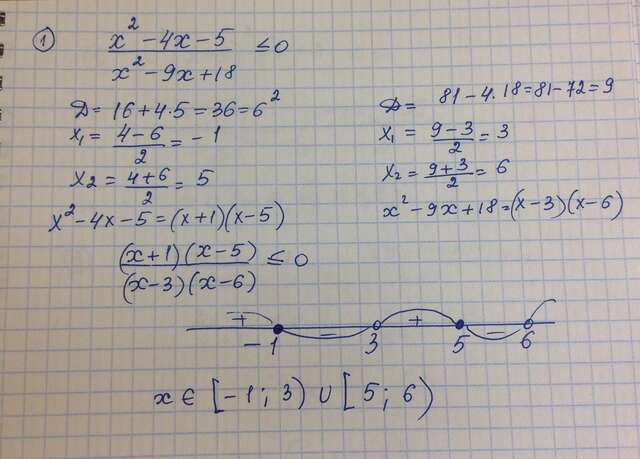 ①
x² - 4x - 5 / x² - 9x + 18 ≤ 0
D = 16 + 4·5 = 36 = 6²
x₁ = (4 - 6)/2 = -1
x₂ = (4 + 6)/2 = 5
x² - 4x - 5 = (x+1)(x-5)
D = 81 - 4·18 = 81 - 72 = 9
x₁ = (9 - 3)/2 = 3
x₂ = (9 + 3)/2 = 6
x² - 9x + 18 = (x-3)(x-6)
(x+1)(x-5) / (x-3)(x-6) ≤ 0
+ − + −
-1 3 5 6
x ∈ [-1; 3) ∪ [5; 6)